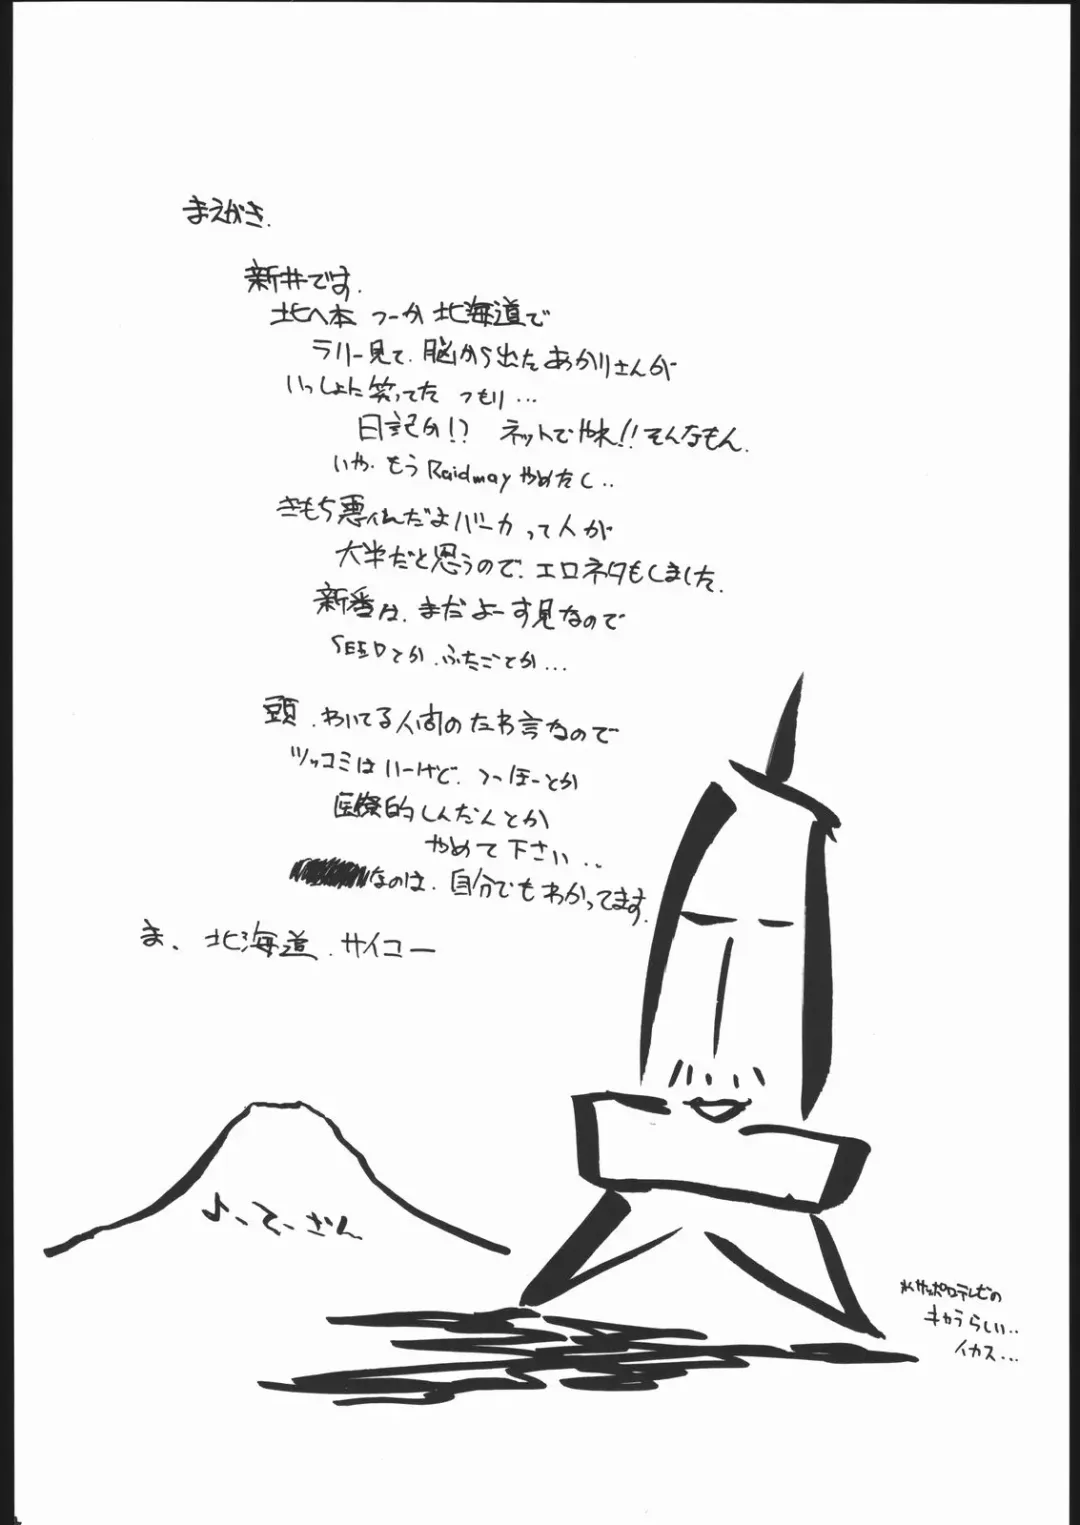 まえがき.
新井です.
北へ本 つーか 北海道で
ラリー見て、脳から出たあかりさんが
いっしょに笑ってた つもり…
日記か!? ネットでやれ!! そんなもん.
いや、もう Raidmay やめたし‥
きもち悪ィんだよバーカ って人が
大半だと思うので、エロネタもしました.
新番は、まだよーす見なので
SEEDとか、ふたごとか…
頭、わいてる人間のたわ言なので
ツッコミはいーけど、つーほーとか
医療的しんだんとか
やめて下さい‥
なのは、自分でもわかってます.
ま、北海道、サイコー
よーてーざん
※サッポロテレビの
キャラらしい‥
イカス…